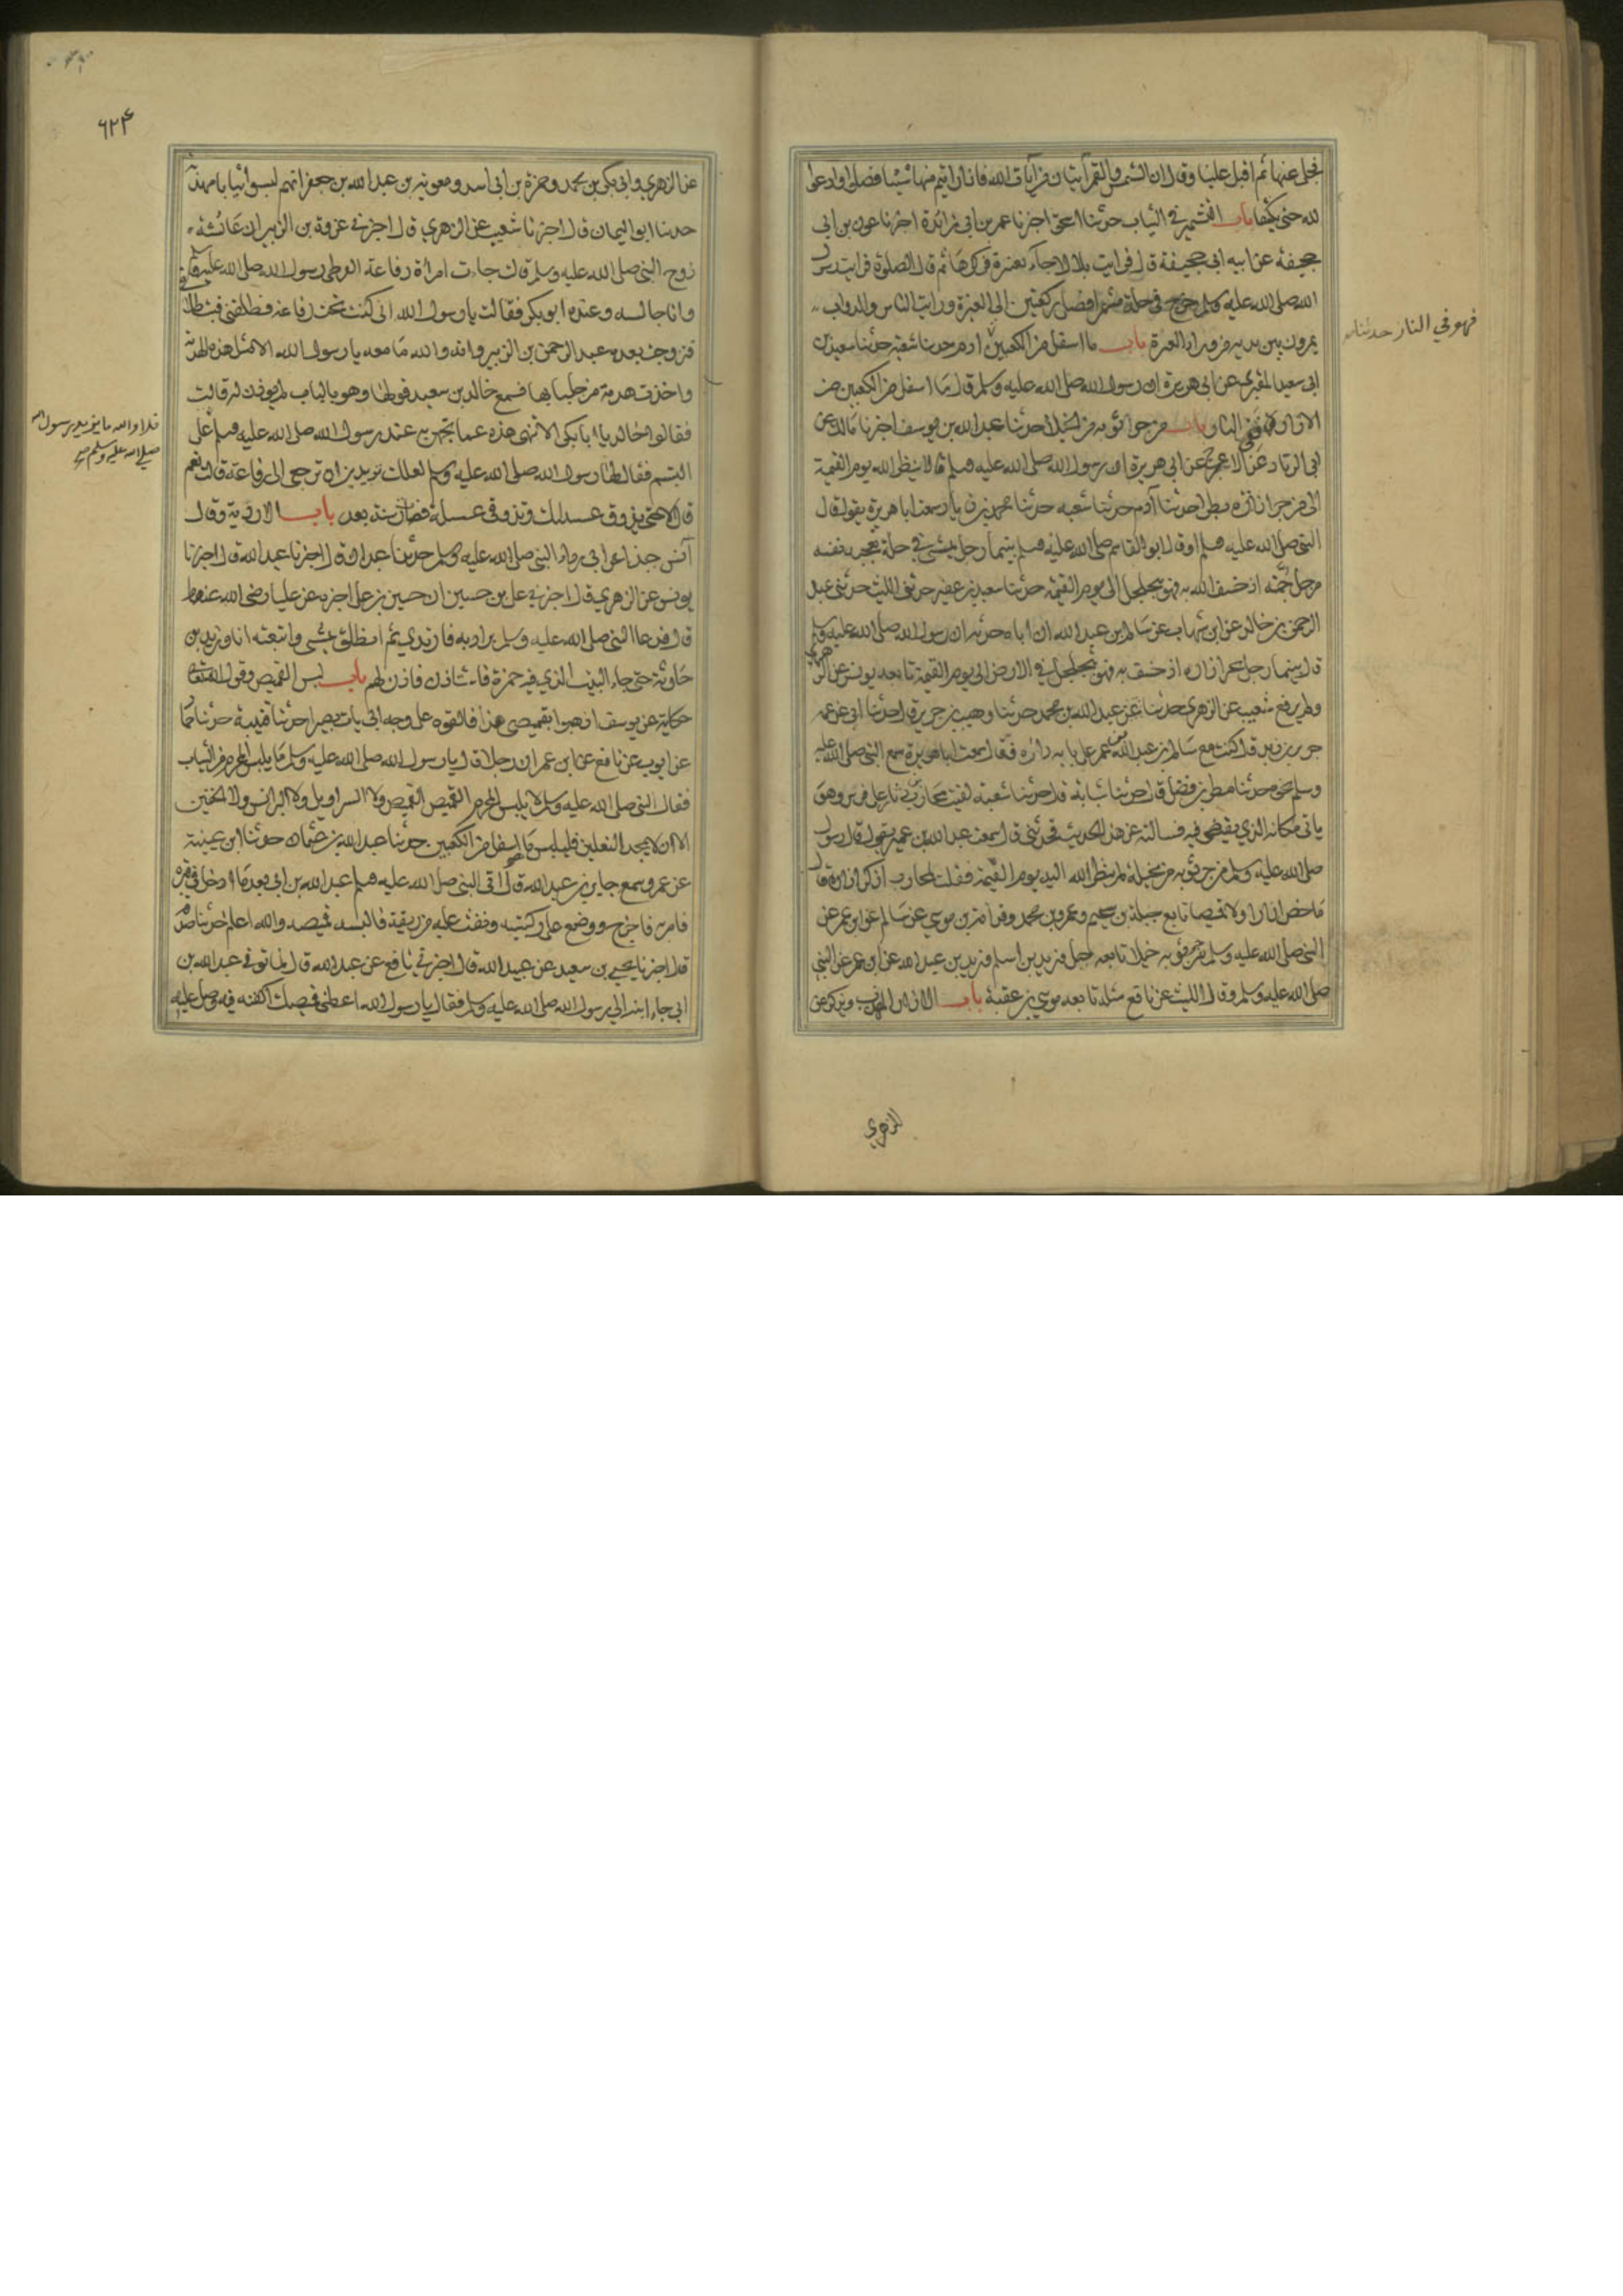 فجلى عنها ثم اقبل علينا وقال ان الشمس والقمر آيتان من آيات الله فاذا رايتم منها شيئا فصلوا وادعوا
لله حتى يكشفها باب التشمير في الثياب حدثنا اسحق اخبرنا عمر بن ابي زائدة اخبرنا عون بن ابي
جحيفة عن ابيه ابي جحيفة قال فرايت بلالا جاء بعنزة فركزها ثم قام الصلوة فرايت رسول
الله صلى الله عليه وسلم خرج في حلة مشمرا فصلى ركعتين الى العنزة ورايت الناس والدواب
يمرون بين يديه من وراء العنزة باب ما اسفل من الكعبين ادم حدثنا شعبة حدثنا سعيد بن
فهو في النار حدثنا
ابي سعيد المقبري عن ابي هريرة ان رسول الله صلى الله عليه وسلم قال ما اسفل من الكعبين من
الازار ففي النار باب من جر ثوبه من الخيلا حدثنا عبد الله بن يوسف اخبرنا مالك عن
ابي الزناد عن الاعرج عن ابي هريرة ان رسول الله صلى الله عليه وسلم قال لا ينظر الله يوم القيمة
الى من جر ازاره بطرا حدثنا آدم حدثنا شعبه حدثنا محمد بن زياد سمعت ابا هريرة يقول قال
النبي صلى الله عليه وسلم او قال ابو القاسم صلى الله عليه وسلم بينما رجل يمشي في حلة تعجبه نفسه
مرجل جمته اذ خسف الله به فهو يتجلجل الى يوم القيمة حدثنا سعيد بن عفير حدثني الليث حدثني عبد
الرحمن بن خالد عن ابن شهاب عن سالم بن عبد الله ان اباه حدثه ان رسول الله صلى الله عليه وسلم
قال بينما رجل يجر ازاره اذ خسف به فهو يتجلجل في الارض الى يوم القيمة تابعه يونس عن الزهري
ولم يرفع شعيب عن الزهري حدثنا عبد الله بن محمد حدثنا وهب بن جرير قال حدثنا ابي عن عمه
جرير بن زيد قال كنت مع سالم بن عبد الله بن عمر على باب داره فقال سمعت ابا هريرة سمع النبي صلى الله عليه
وسلم نحوه حدثنا مطر بن فضل قال حدثنا شبابة قال حدثنا شعبة لقيت محارب بن دثار على فرس وهو
ياتي مكانه الذي يقضي فيه فسالته عن هذا الحديث فحدثني قال سمعت عبد الله بن عمر يقول قال رسول
صلى الله عليه وسلم من جر ثوبه من مخيلة لم ينظر الله اليه يوم القيمة فقلت لمحارب اذكر ازاره قال
ما خص ازارا ولا قميصا تابعه جبلة بن سحيم وعمر بن محمد وقدامة بن موسى عن سالم عن ابن عمر عن
النبي صلى الله عليه وسلم من جر ثوبه خيلا تابعه جبل وزيد بن اسلم وزيد بن عبد الله عن ابن عمر عن النبي
صلى الله عليه وسلم وقال الليث عن نافع مثله تابعه موسى بن عقبة باب الازار المهدب ويذكر عن
الزهري
٦٢٤
عن الزهري وابي بكر بن محمد وحمزة بن ابي اسد ومعوية بن عبد الله بن جعفر انهم لبسوا ثيابا مهدبة
حدثنا ابو اليمان قال اخبرنا شعيب عن الزهري قال اخبرني عروة بن الزبير ان عائشة
زوج النبي صلى الله عليه وسلم قالت جاءت امراة رفاعة القرظي رسول الله صلى الله عليه وسلم
وانا جالسه وعنده ابو بكر فقالت يا رسول الله اني كنت تحت رفاعة فطلقني فبت طلاقي
فتزوجت بعده عبد الرحمن بن الزبير وانه والله ما معه يا رسول الله الا مثل هذه الهدبة
واخذت هدبة من جلبابها فسمع خالد بن سعيد قولها وهو بالباب لم يوذن له قالت
فقال خالد يا ابا بكر الا تنهى هذه عما تجهر به عند رسول الله صلى الله عليه وسلم على
فلا والله ما يزيد رسول الله
صلى الله عليه وسلم
التبسم فقال لها رسول الله صلى الله عليه وسلم لعلك تريدين ان ترجعي الى رفاعة قالت نعم
قال لا حتى يذوق عسيلتك وتذوقي عسيلته فصار سنة بعد باب الاردية وقال
انس جذ اعرابي رداء النبي صلى الله عليه وسلم حدثنا عبدان قال اخبرنا عبد الله قال اخبرنا
يونس عن الزهري قال اخبرني علي بن حسين ان حسين بن علي اخبره عن عليا رضى الله عنهم
قال فدعا النبي صلى الله عليه وسلم بردائه فارتدى ثم انطلق يمشي واتبعته انا وزيد بن
حارثة حتى جاء البيت الذي فيه حمزة فاستاذن فاذن لهم باب لبس القميص وقول الله تعالى
حكاية عن يوسف اذهبوا بقميصي هذا فالقوه على وجه ابي يات بصيرا حدثنا قتيبة حدثنا حماد
عن ايوب عن نافع عن ابن عمر ان رجلا قال يا رسول الله صلى الله عليه وسلم ما يلبس المحرم من الثياب
فقال النبي صلى الله عليه وسلم لا يلبس المحرم القميص القميص ولا السراويل ولا البرانس ولا الخفين
الا ان لا يجد النعلين فليلبس ما اسفل من الكعبين حدثنا عبد الله بن عثمان حدثنا ابن عيينة
عن عمرو سمع جابر بن عبد الله قال اتى النبي صلى الله عليه وسلم عبد الله بن ابي بعد ما ادخل في قبره
فامر به فاخرج ووضع على ركبتيه ونفث عليه من ريقه والبسه قميصه والله اعلم حدثنا صدقة
قال اخبرنا يحيى بن سعيد عن عبيد الله قال اخبرني نافع عن عبد الله قال لما توفي عبد الله بن
ابي جاء ابنه الى رسول الله صلى الله عليه وسلم فقال يا رسول الله اعطني قميصك اكفنه فيه وصل عليه